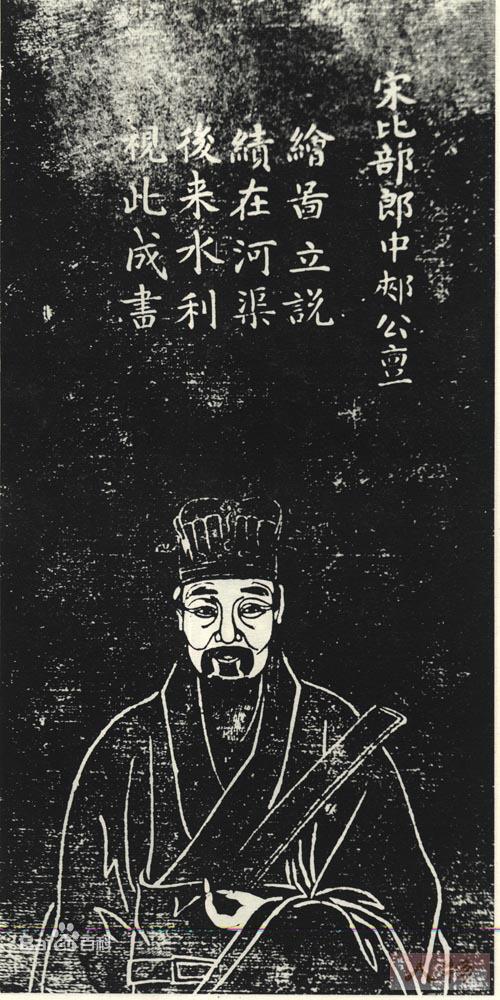 宋比部郎中郟公亶
繪啚立説
績在河渠
後来水利
視此成書
Bai百科